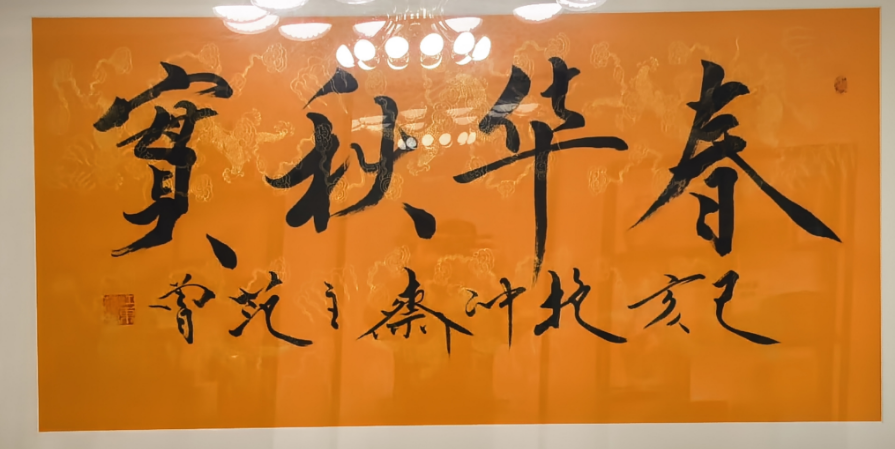 春华秋實
己亥抱冲斋主范曾